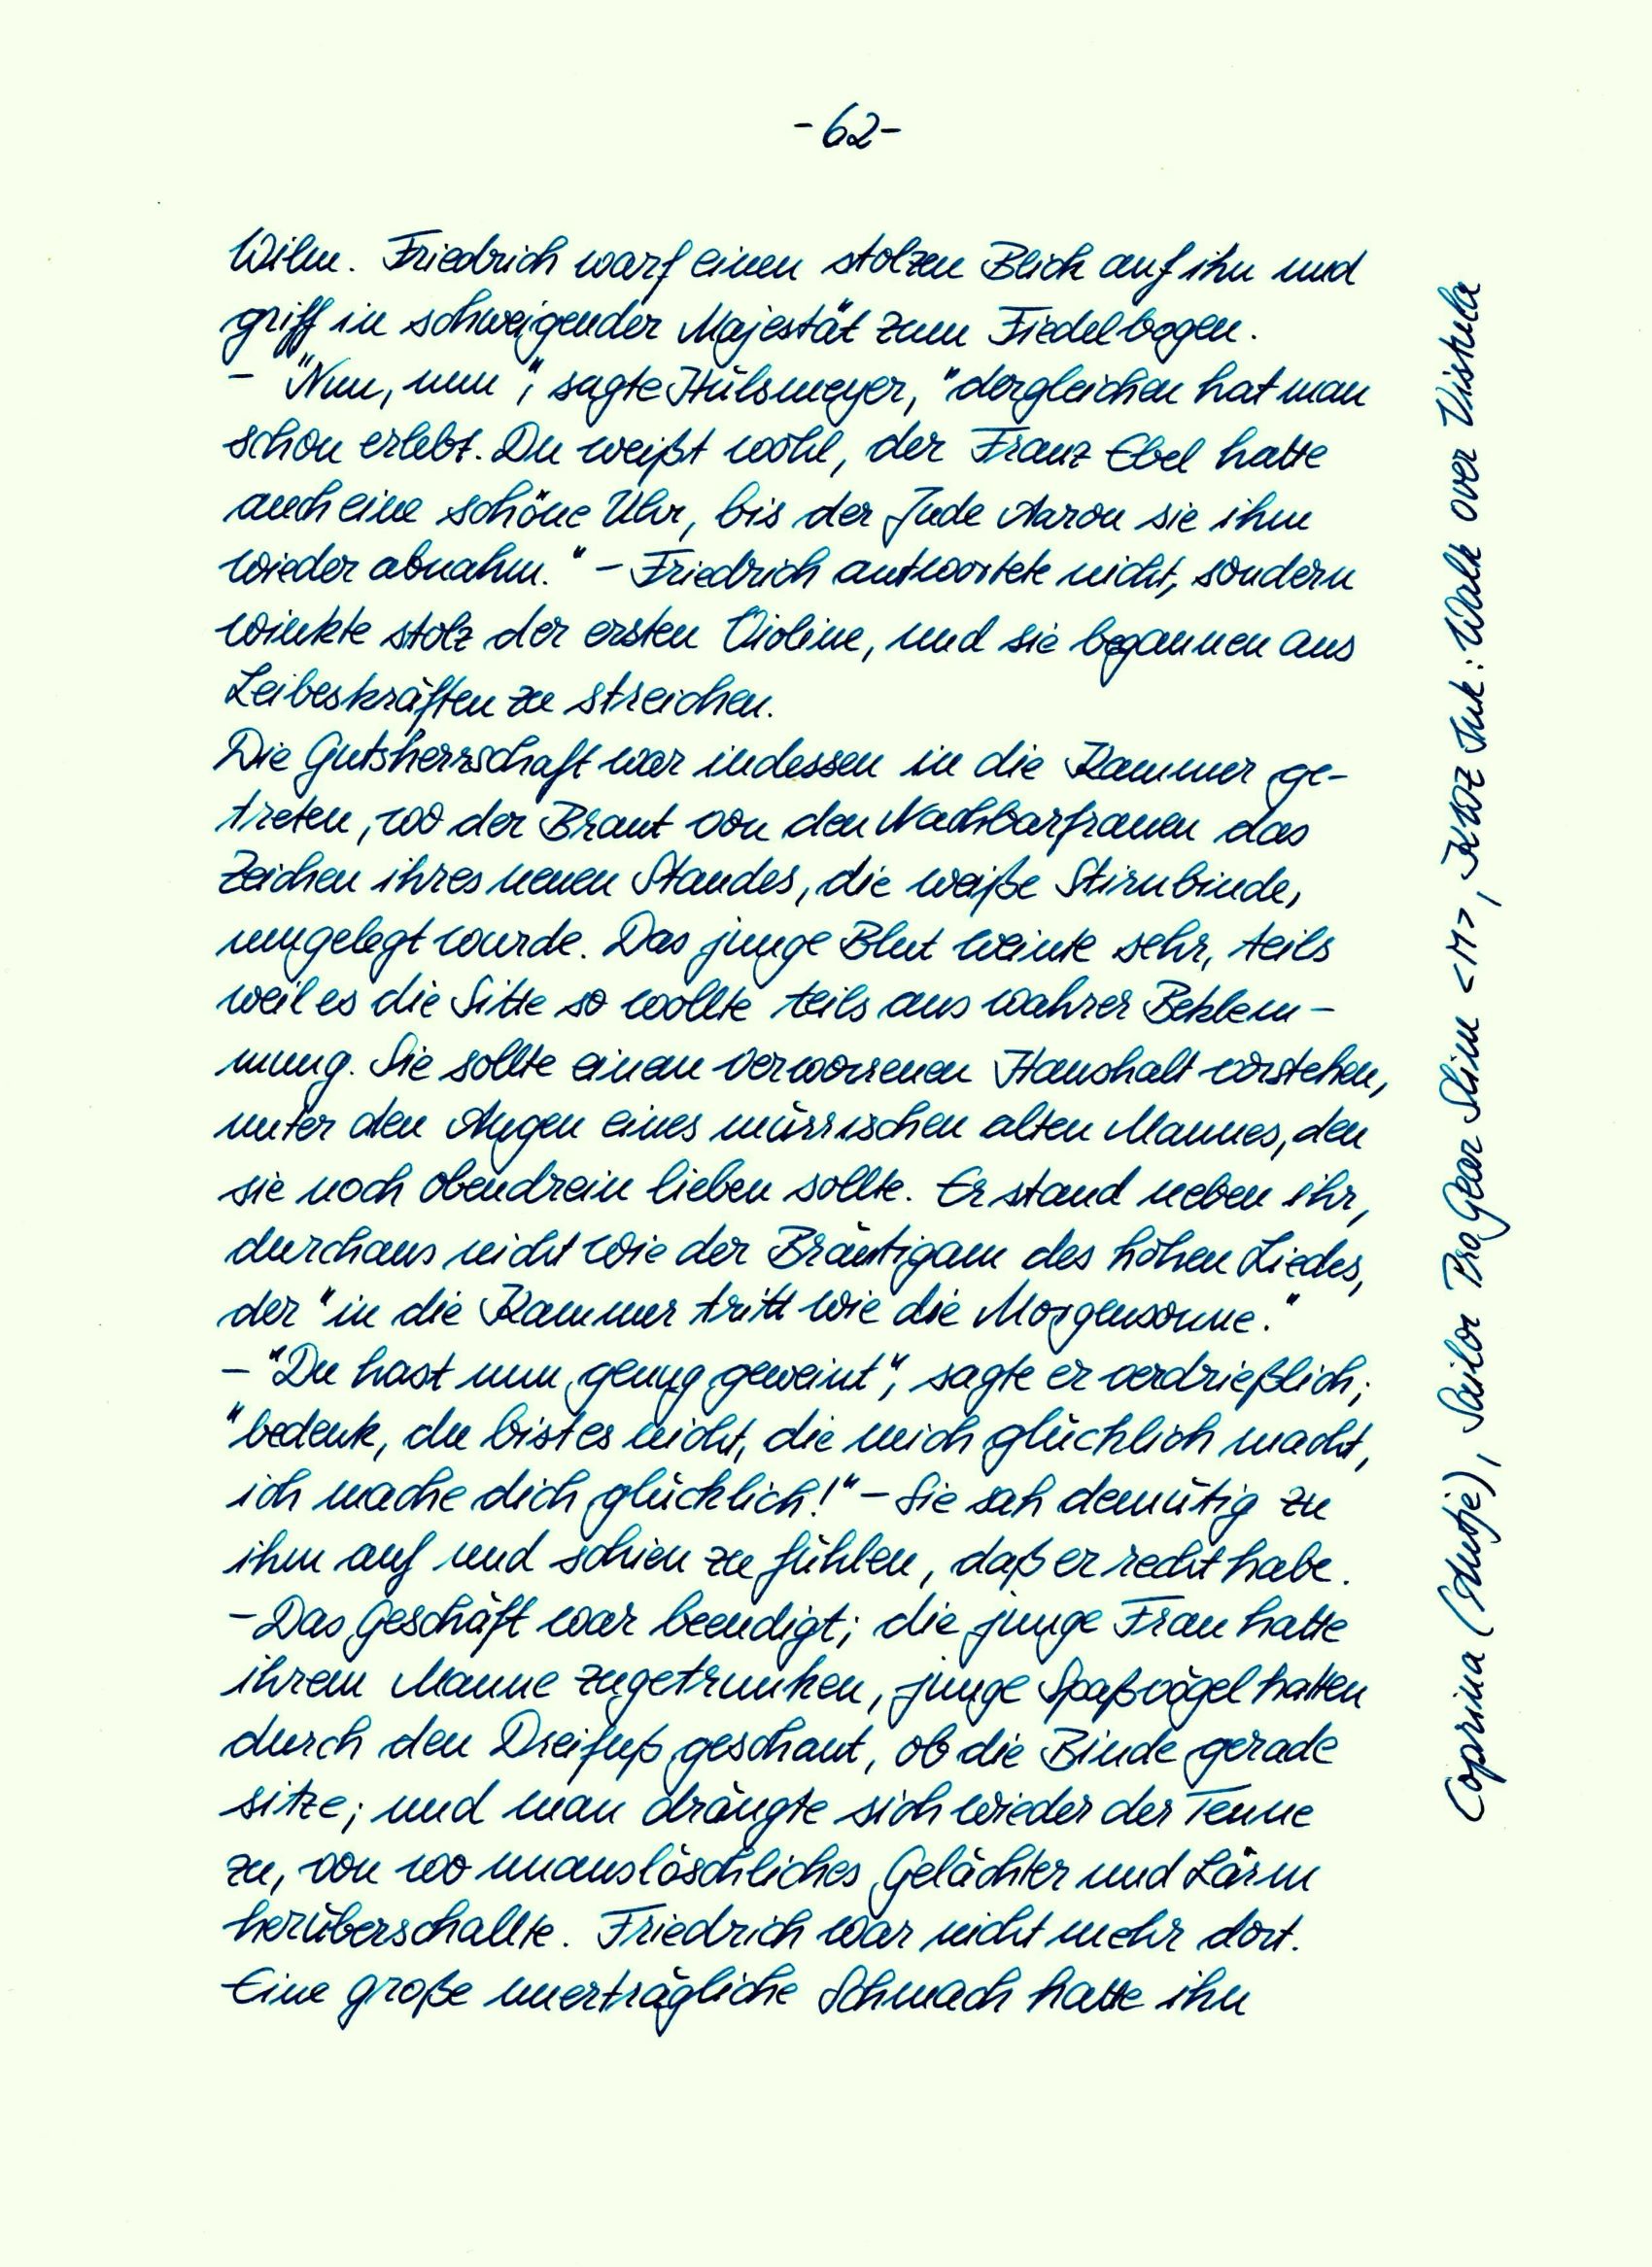 -62-
Wilm. Friedrich warf einen stolzen Blick auf ihn und
griff in schweigender Majestät zum Fiedelbogen.
- "Nun, nun", sagte Hülsmeyer, "dergleichen hat man
schon erlebt. Du weißt wohl, der Franz Ebel hatte
auch eine schöne Uhr, bis der Jude Aaron sie ihm
wieder abnahm." - Friedrich antwortete nicht, sondern
winkte stolz der ersten Violine, und sie begannen aus
Leibeskräften zu streichen.
Die Gutsherrschaft war indessen in die Kammer ge-
treten, wo der Braut von den Nachbarfrauen das
Zeichen ihres neuen Standes, die weiße Stirnbinde,
umgelegt wurde. Das junge Blut weinte sehr, teils
weil es die Sitte so wollte teils aus wahrer Beklem-
mung. Sie sollte einem verworrenen Haushalt vorstehen,
unter den Augen eines mürrischen alten Mannes, den
sie noch obendrein lieben sollte. Er stand neben ihr,
durchaus nicht wie der Bräutigam des hohen Liedes,
der "in die Kammer tritt wie die Morgensonne."
- "Du hast nun genug geweint", sagte er verdrießlich;
"bedenk, du bist es nicht, die mich glücklich macht,
ich mache dich glücklich!" - Sie sah demütig zu
ihm auf und schien zu fühlen, daß er recht habe.
- Das Geschäft war beendigt; die junge Frau hatte
ihrem Manne zugetrunken, junge Spaßvögel hatten
durch den Dreifuß geschaut, ob die Binde gerade
sitze; und man drängte sich wieder der Tenne
zu, von wo unauslöschliches Gelächter und Lärm
herüberschallte. Friedrich war nicht mehr dort.
Eine große unerträgliche Schmach hatte ihn
Coprina (Antje), Sailor Pro Gear Slim <M>, KWZ Ink: Walk over Vistula